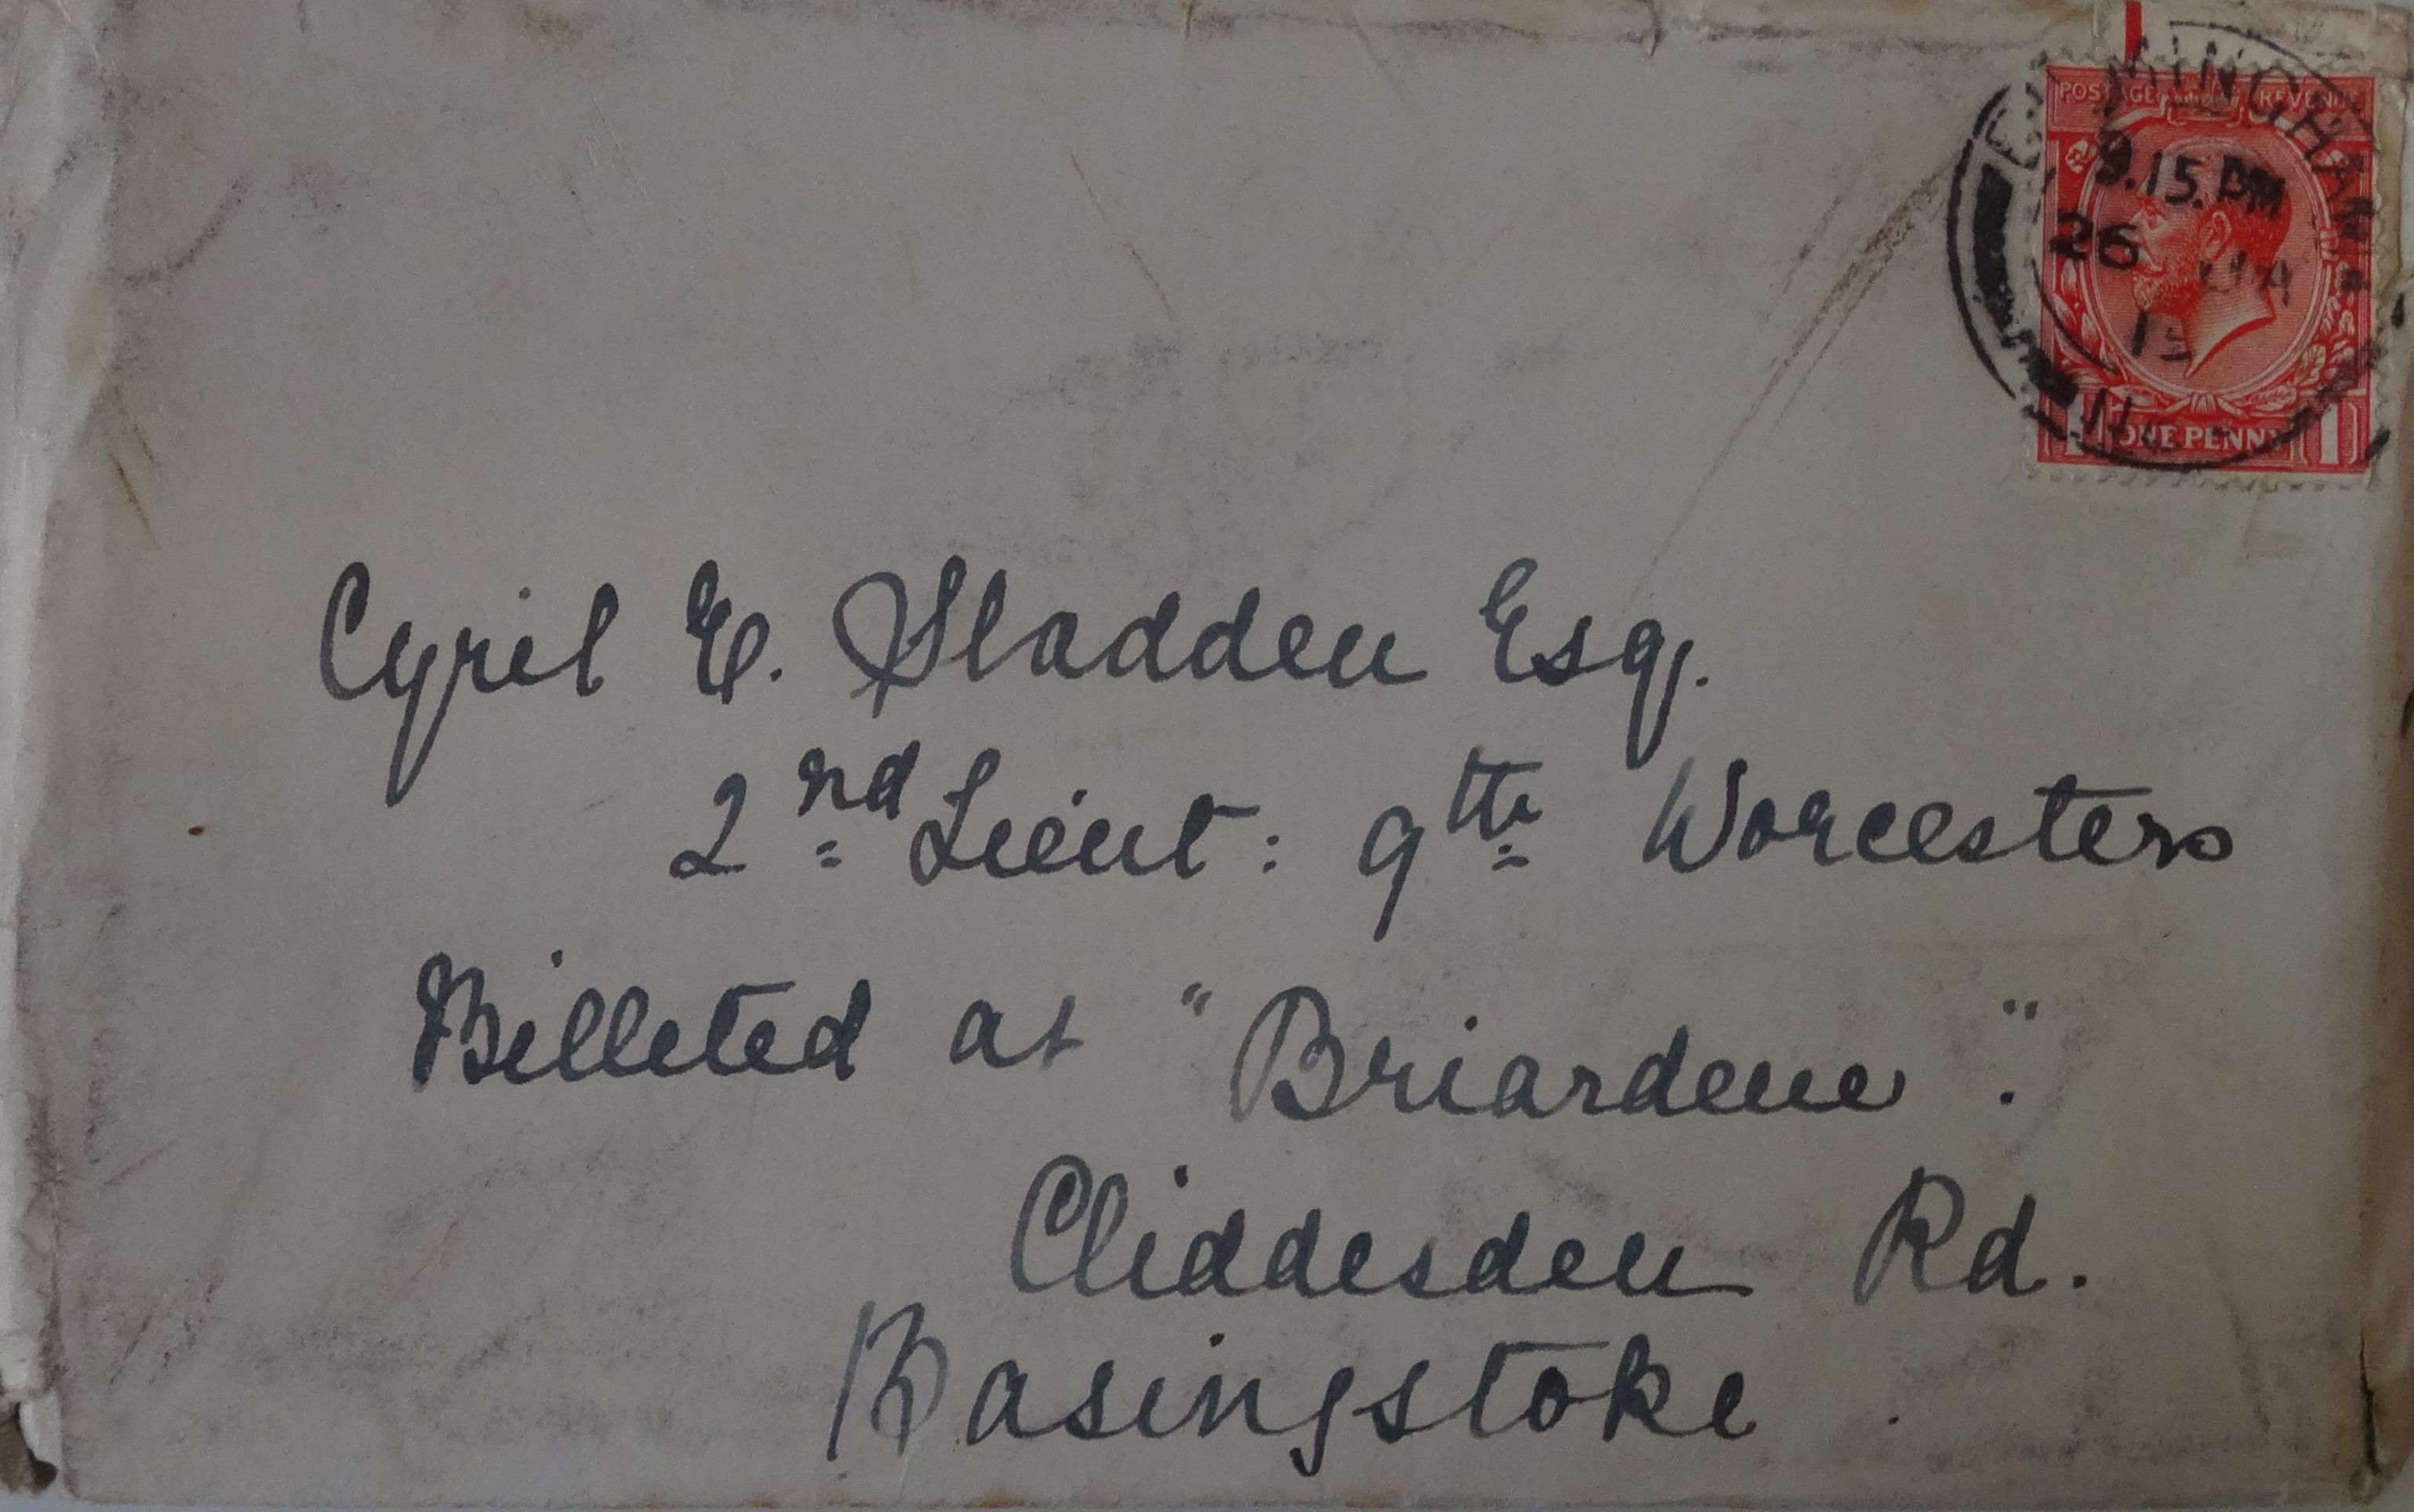 POSTAGE REVENUE
BIRMINGHAM
9.15.PM
26
15
ONE PENNY
1
Cyril E. Sladden Esq.
2nd Lieut: 9th Worcesters
Billeted at "Briardene".
Cliddesden Rd.
Basingstoke